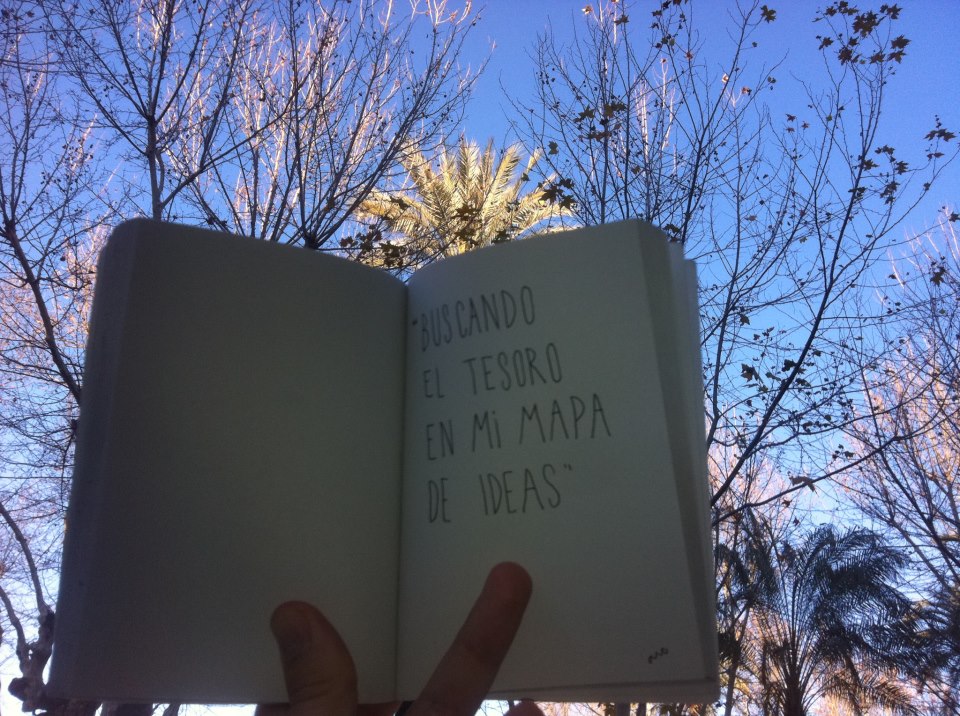 "BUSCANDO
EL TESORO
EN Mi MAPA
DE IDEAS"